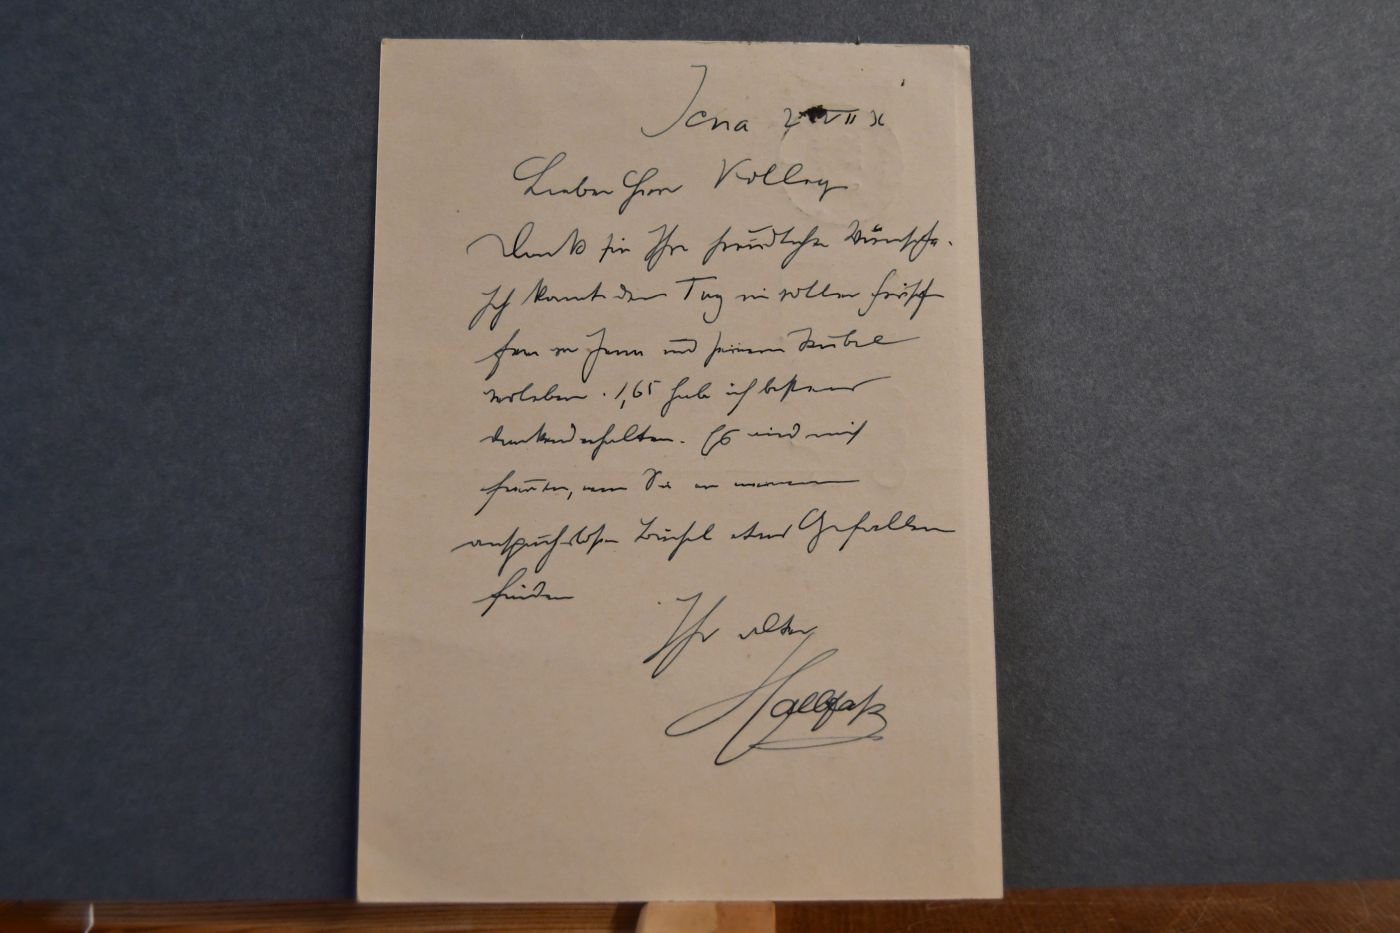 Jena 2 VII
Lieber Herr Kolley
Dank für Ihre freundlichen Wünsche.
Ich konnte den Tag in voller Frisch
in Jena und seinem Trubel
verleben. 1,65 hab ich bestens
dankend erhalten. Es wird mich
freuen, wenn Sie an meinem
anspruchslosen Büchel etwas Gefallen
finden
Ihr alter